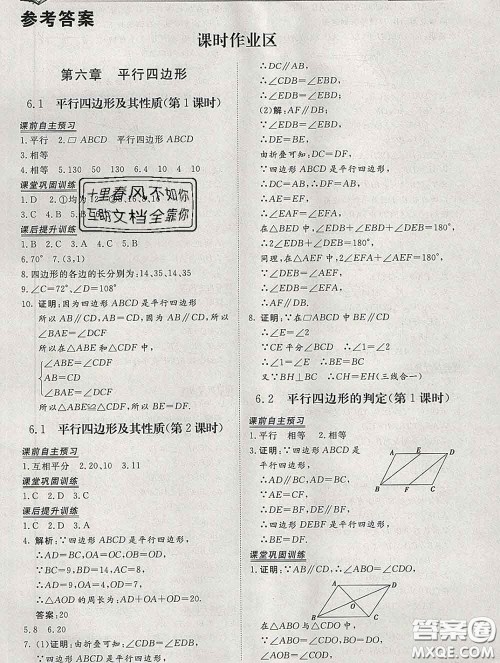 参考答案
课时作业区
第六章 平行四边形
6.1 平行四边形及其性质(第1课时)
课前自主预习
1.平行 2.□ABCD 平行四边形ABCD
3.相等
4.相等 5.130 50 130 6.45 10 4
课堂巩固训练
1.D 2.①均为72
十里春风不如你
互助文档全靠你
课后提升训练
1.B 2.C 3.D 4.A 5.
6.70° 7.(3,1)
8.四边形的各边的长分别为:14,35,14,35
9.∠C=72° ∠D=108°
10.证明:因为四边形ABCD是平行四边形
所以AB∥CD,AB=CD
所以∠BAE=∠DCF
在△ABE和△CDF中
∠BAE=∠DCF
AB=CD
∠ABE=∠CDF
所以△ABE≌△CDF
6.1 平行四边形及其性质(第2课时)
课前自主预习
1.互相平分 2.20,10 3.11
课堂巩固训练
1.C 2.D 3.A
课后提升训练
1.C 2.D 3.D
4.解析:∵四边形ABCD是平行四边形
∴AD=BC,OA=OC,OB=OD
∵BC=9,BD=14,AC=8
∴AD=9,OA=4,OD=7
∴△AOD的周长为:AD+OD+OA=20
答案:20
5.8 6.OA=OD
7.(1)证明:由折叠可知:∠CDB=∠EDB
∵四边形ABCD是平行四边形
∴DC∥AB
∴∠CDB=∠EBD
∴∠EDB=∠EBD
(2)解:AF∥DB
∵∠EDB=∠EBD
∴DE=BE
由折叠可知:DC=DF
∵四边形ABCD是平行四边形
∴DC=AB
∴AE=EF
∴∠EAF=∠EFA
在△BED中,∠EDB+∠EBD+∠DEB=180°
即2∠EDB+∠DEB=180°
同理,在△AEF中,2∠EFA+∠AEF=180°
∴∠EDB=∠EFA
∴AF∥DB
8.证明:∵在□ABCD中,BE∥CD
∴∠E=∠2
∵CE平分∠BCD
∴∠1=∠2
∴∠1=∠E ∴BE=BC
又∵BH⊥BC ∴CH=EH(三线合一)
6.2 平行四边形的判定(第1课时)
课前自主预习
1.平行 相等 2.相等
3.证明:∵四边形ABCD是平行四边形
∴AD∥BC,AD=BC
∵AE=CF
∴DE=BF
∴四边形DEBF是平行四边形
∴BE=DF
A E D
B F C
课堂巩固训练
1.证明:∵AB∥CD,∴∠ABO=∠CDO
A D
O
B C
在△ABO与△CDO中
∠ABO=∠CDO
答案圈
MXQE.COM